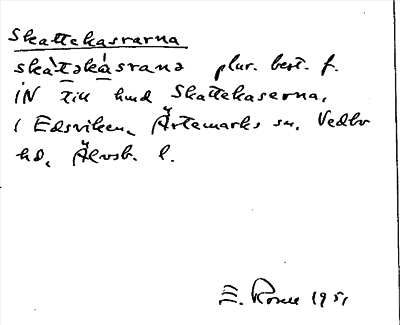 Skattekasrarna
skàt̲əkásranə plur. best. f.
IN till hmd Skattekaserna,
i Edsviken, Ärtemarks sn, Vedbo
hd, Älvsb. l.
E. 1951